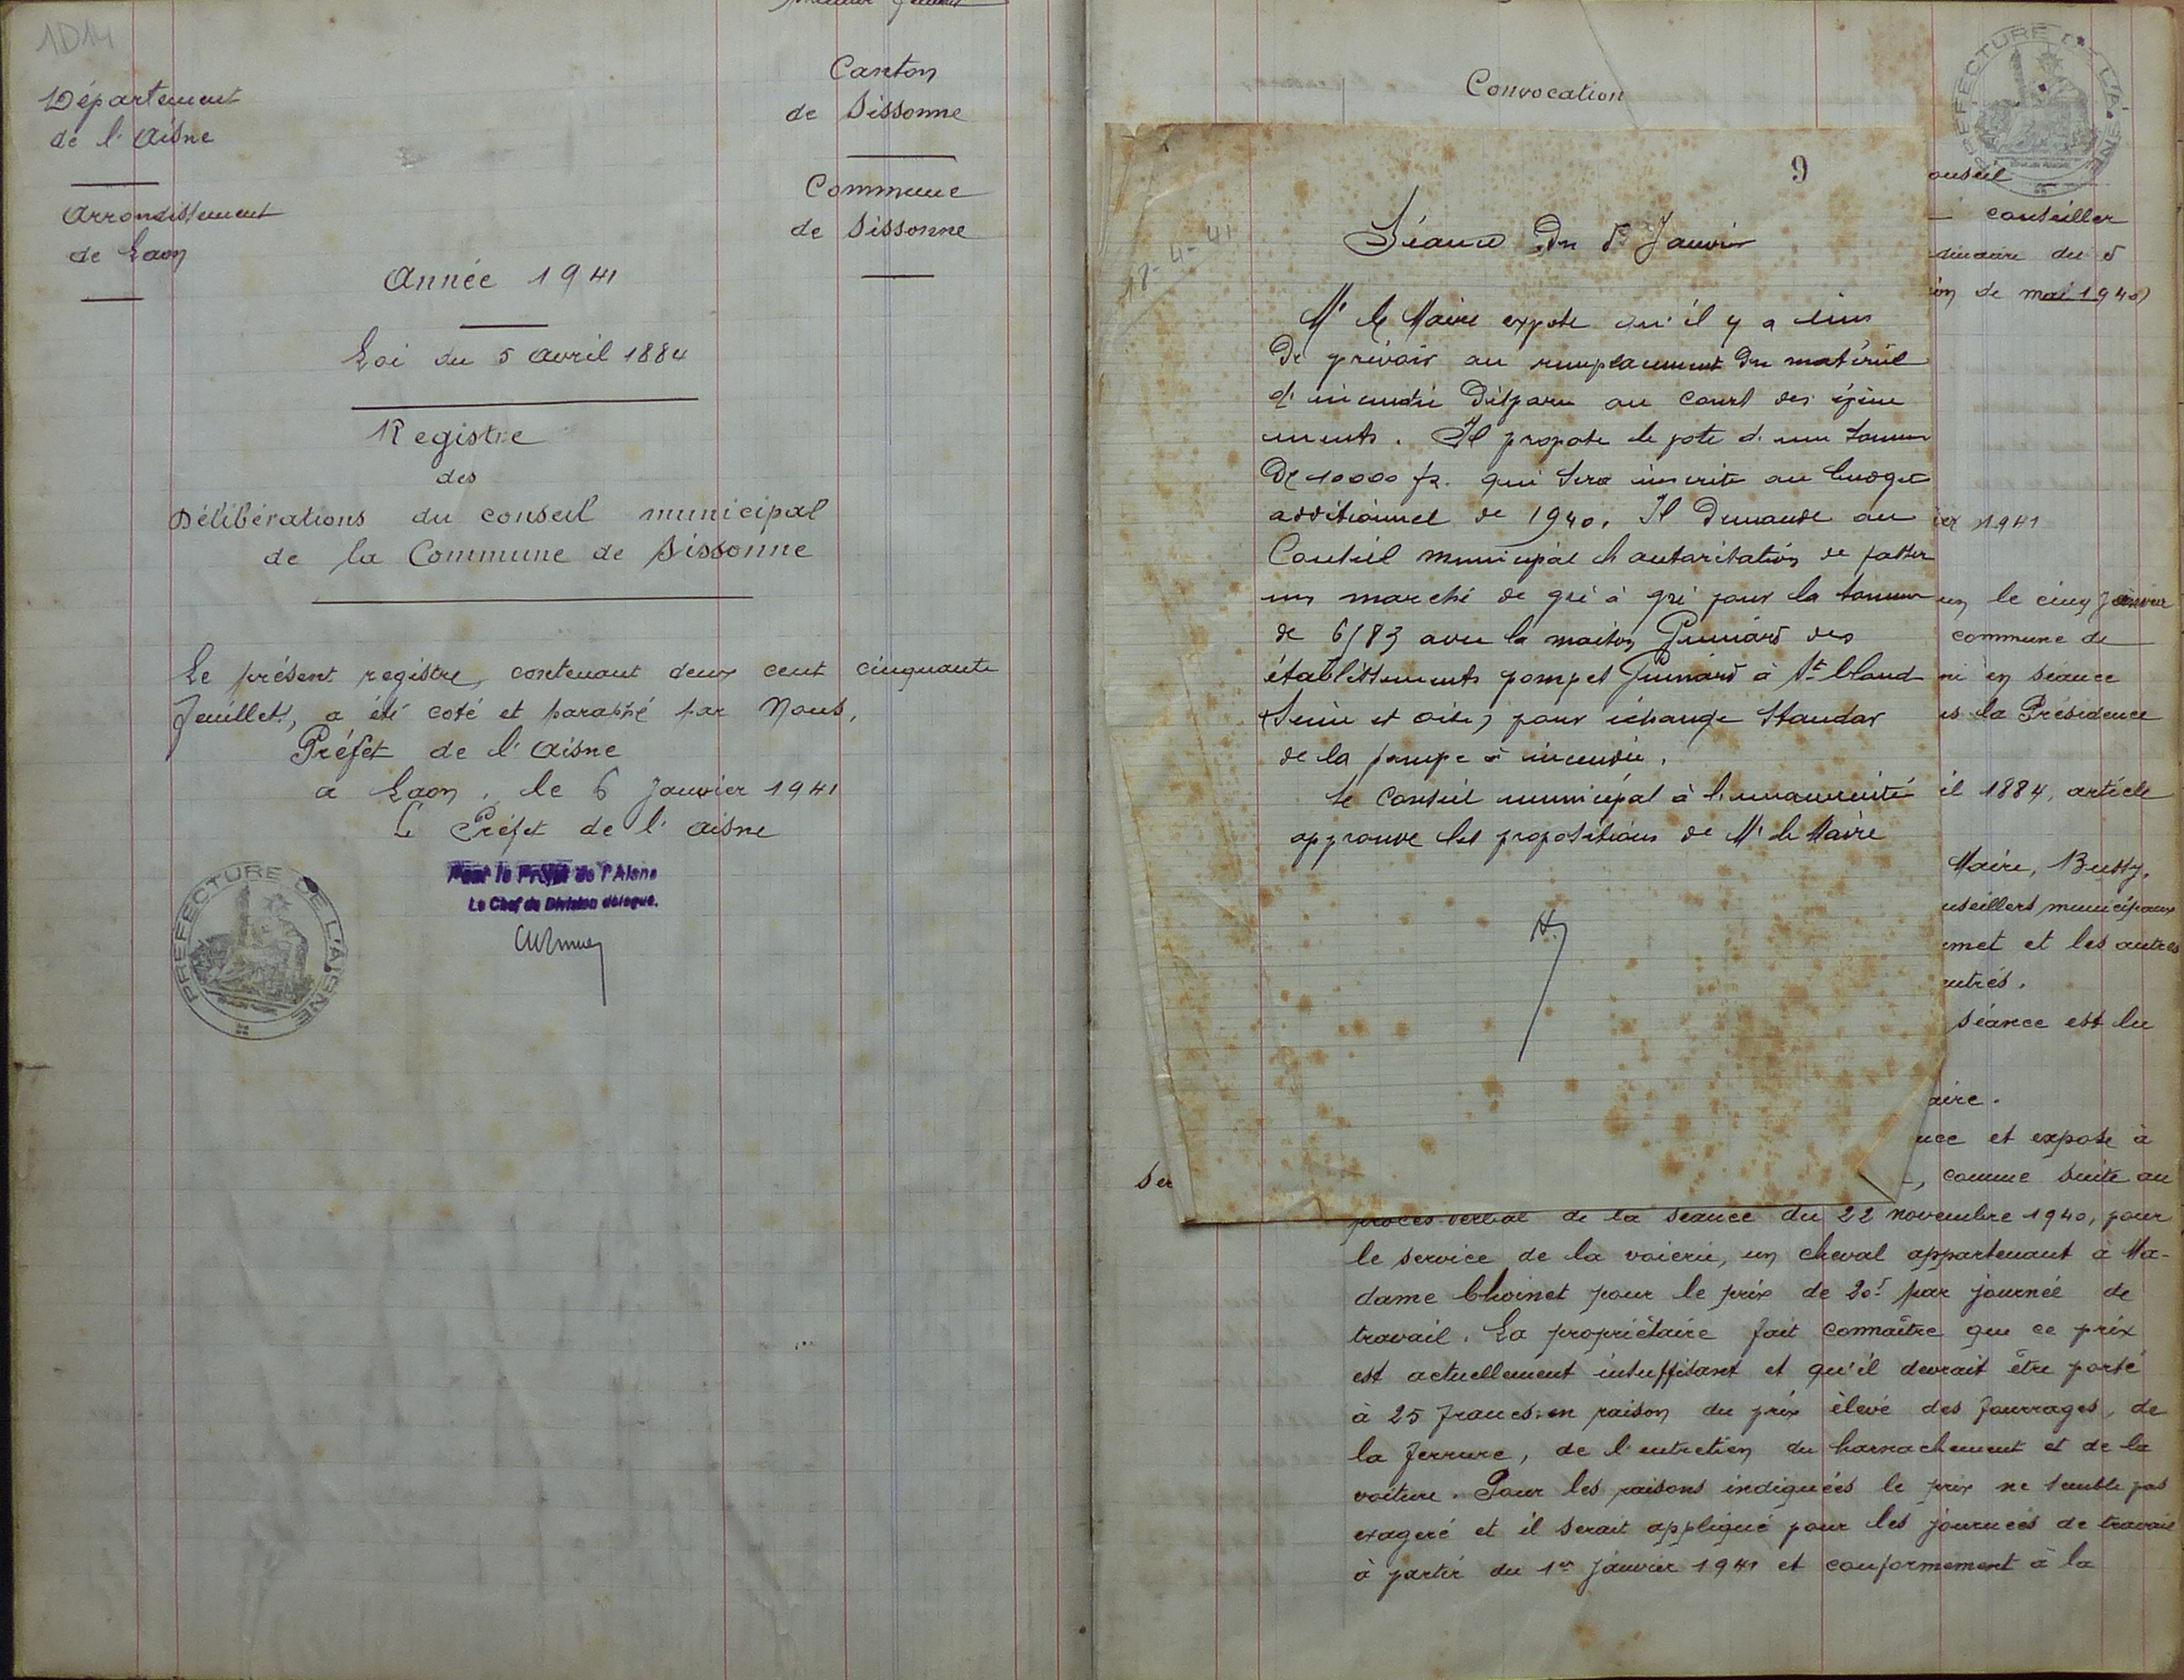 1D14
Département
de l'Aisne
Arrondissement
de Laon
Canton
de Sissonne
Commune
de Sissonne
Année 1941
Loi du 5 avril 1884
Registre
des
Délibérations du conseil municipal
de la Commune de Sissonne
Le présent registre, contenant deux cent cinquante
feuillets, a été coté et paraphé par Nous,
Préfet de l'Aisne
a Laon, le 6 Janvier 1941
Le Préfet de l'Aisne
Pour le Préfet de l'Aisne
Le Chef de Division délégué.
PREFECTURE DE L'AISNE
Convocation
PREFECTURE DE L'AISNE
9
18-4-41
Séance du 5 Janvier
Mr le Maire expose qu'il y a lieu
de prévoir au remplacement du matériel
d'incendie disparu au court des évène
ments. Il propose le vote d'une somme
de 10000 fr. qui sera inscrite au budget
additionnel de 1940. Il demande au
Conseil municipal l'autorisation de passer
un marché de gré à gré pour la somme
de 6183 avec la maison Guinard des
établissements pompes Guinard à St Cloud
(Seine et Oise) pour échange Standar
de la pompe à incendie.
Le Conseil municipal à l'unanimité
approuve les propositions de Mr le Maire
onseil
conseiller
dinaire du 5
ion de mai 1940)
ier 1941
un le cinq Janvier
commune de
ni en séance
us la Présidence
il 1884, article
Maire, Bussy,
nseillers municipaux
emet et les autres
séance est lu
aire.
nce et expose à
Ser
, comme suite au
procès-verbal de la séance du 22 novembre 1940, pour
le service de la voierie, un cheval appartenant à Ma-
dame Choinet pour le prix de 20f par journée de
travail. La propriétaire fait connaître que ce prix
est actuellement insuffisant et qu'il devrait être porté
à 25 francs en raison du prix élevé des fourrages, de
la ferrure, de l'entretien du harnachement et de la
voiture. Pour les raisons indiquées le prix ne semble pas
exagéré et il serait appliqué pour les journées de travail
à partir du 1er Janvier 1941 et conformément à la